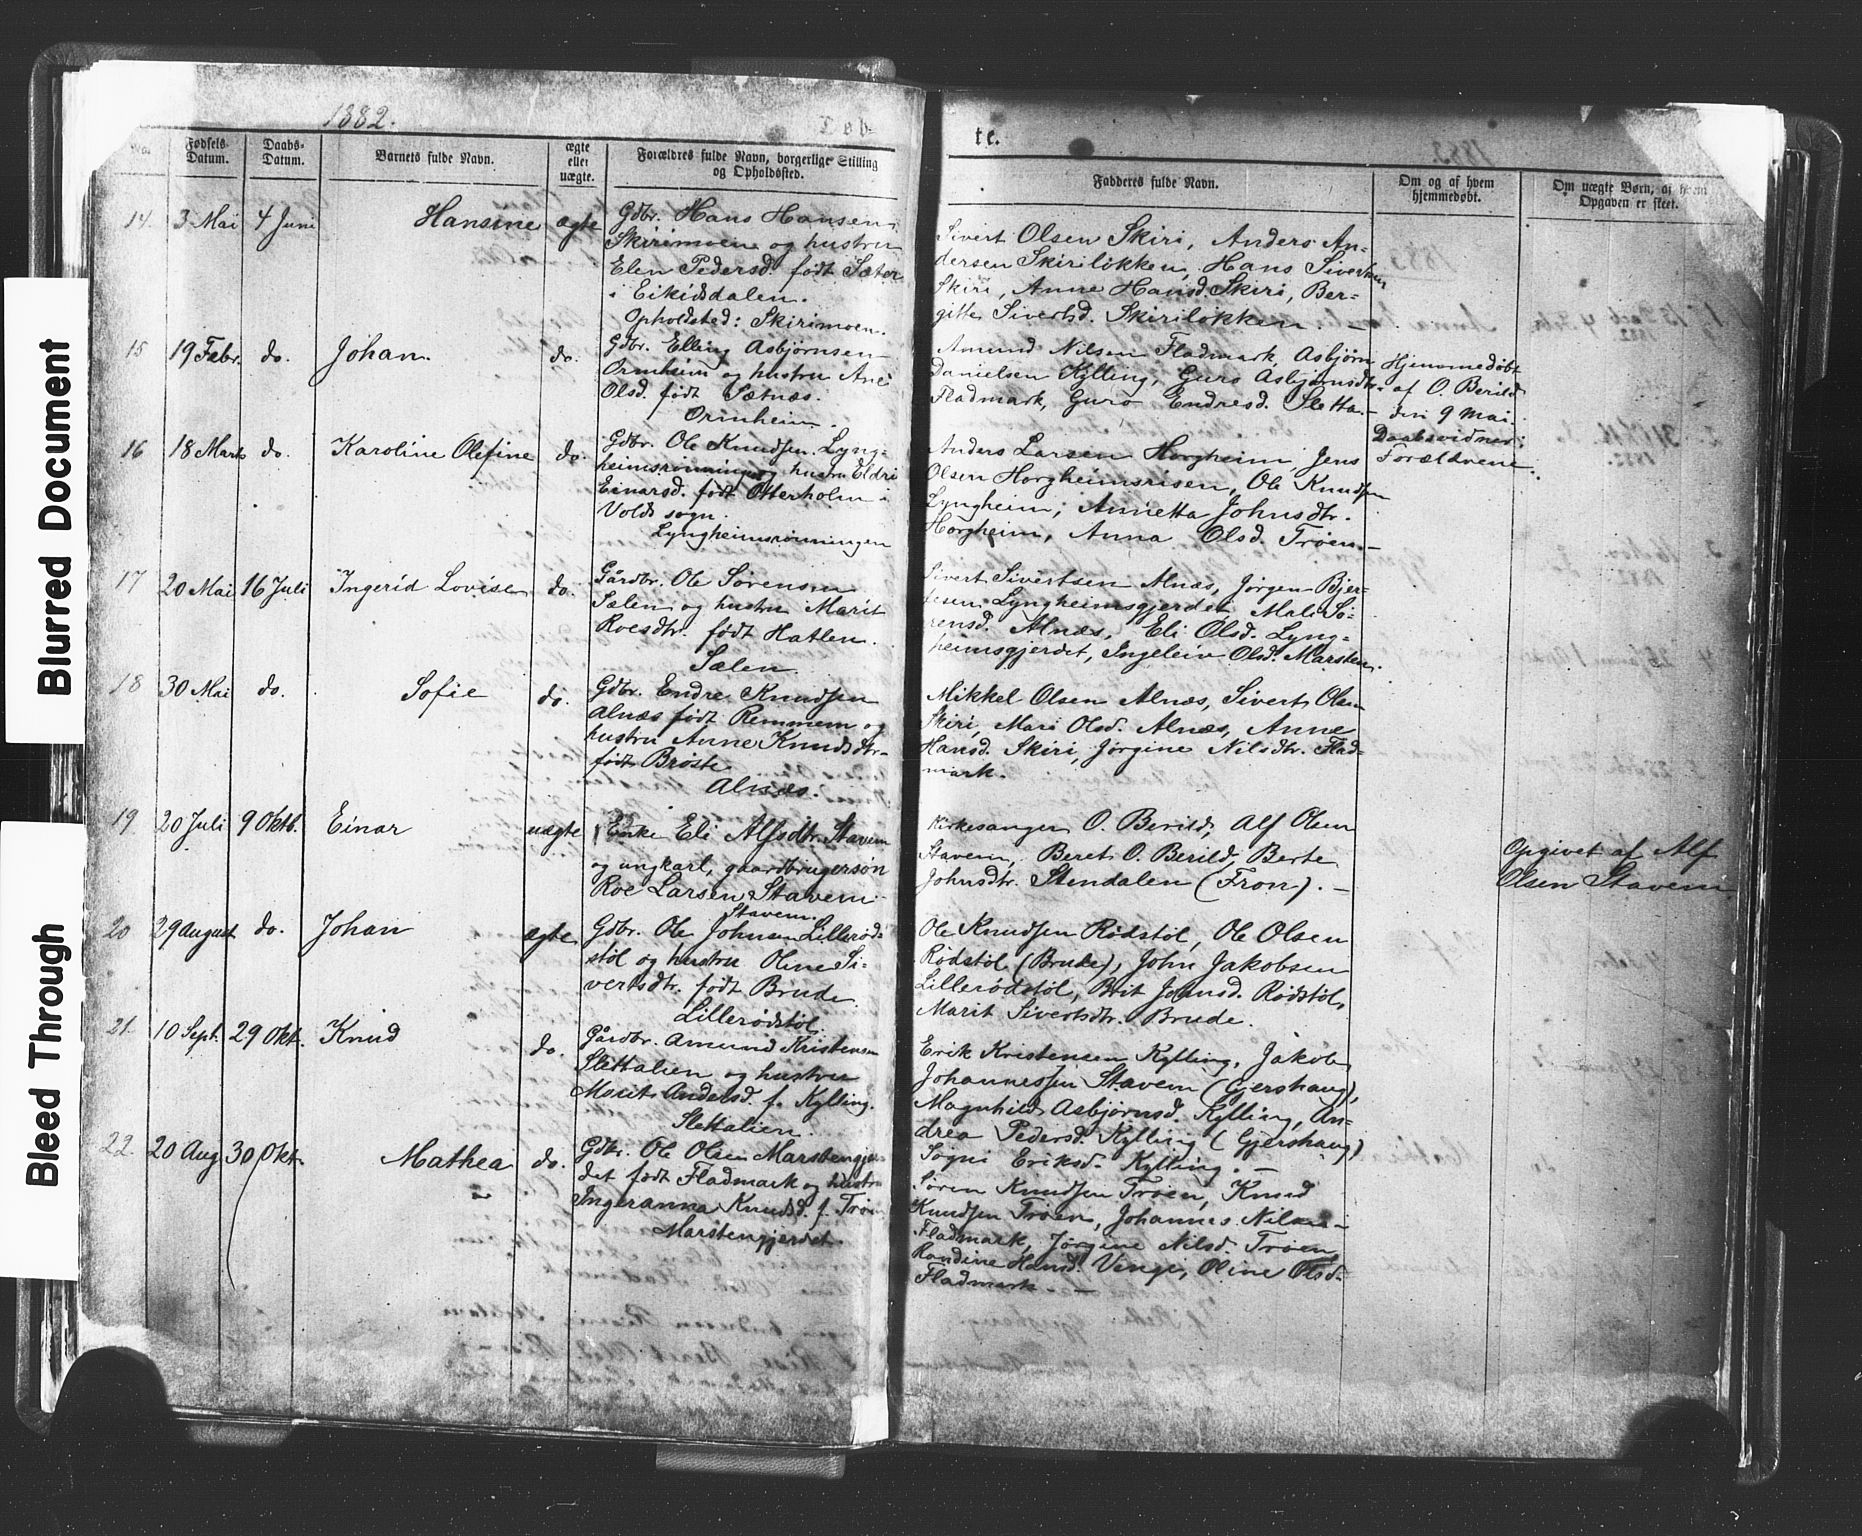 Blurred Document
Bleed Through
1882.
Døb-
No.
Fødsels-
Datum.
Daabs-
Datum.
Barnets fulde Navn.
ægte
eller
uægte.
Forældres fulde Navn, borgerlige Stilling
og Opholdsted.
14. 3 Mai 4 Juni Hansine ægte
Gdbr. Hans Hansen
Skirimoen og hustru
Elen Pedersd. født Sæter
i Eikisdalen.
Opholdsted: Skirimoen.
15 19 Febr. do. Johan. do.
Gdbr. Elling Asbjørnsen
Ormheim og hustru Ane
Olsd. født Sætnæs.
Ormheim.
16 18 Marts do. Karoline Olefine do.
Gdbr. Ole Knudsen Lyng-
heimsrønningen og hustru Eldri
Einarsd. født Otterholm i
Volds sogn.
Lyngheimsrønningen
17 20 Mai 16 Juli Ingerid Lovise do.
Gårdbr. Ole Sørensen
Sælen og hustru Marit
Roesdtr. født Hatlen.
Sælen
18 30 Mai do. Sofie do.
Gdbr. Endre Knudsen
Alnæs født Remmem og
hustru Anne Knudsdtr.
født Brøste
Alnæs.
19 20 Juli 9 Oktb. Einar uægte
Enke Eli Alfsdtr. Stavem
og ungkarl, gaardbrugersøn
Roe Larsen Stavem
Stavem.
20 29 august do. Johan ægte
Gdbr. Ole Johnsen Lillerød-
støl og hustru Oline Si-
vertsdtr. født Brude.
Lillerødstøl.
21. 10 Sept. 29 Okt. Knud do.
Gårdbr. Amund Kristensen
Slettalien og hustru
Marit Andersd. f. Kylling.
Slettalien.
22. 20 Aug 30 Okt. Mathea do.
Gdbr. Ole Olsen Marstengjer-
det født Fladmark og hustru
Ingeranna Knudsd. f. Trøen
Marstengjerdet
te.
1883.
Fadderes fulde Navn.
Om og af hvem
hjemmedøbt.
Om uægte Børn, af hvem
Opgaven er skeet.
Sivert Olsen Skiri, Anders An-
dersen Skiriløkken, Hans Sivertsen
Skiri, Anne Hansd. Skiri, Ber-
gitte Sivertsd. Skiriløkken. —
Amund Nilsen Fladmark, Asbjørn
Danielsen Kylling, Guro Asbjørnsdtr.
Fladmark, Guro Endresd. Sletta. —
Hjemmedøbt
af O. Berild
den 9 Mai.
Daabsvidner:
Forældrene.
Anders Larsen Horgheim, Jens
Olsen Horgheimsrisen, Ole Knudsen
Lyngheim, Annetta Johnsdtr.
Horgheim, Anna Olsd. Trøen. —
Sivert Sivertsen Alnæs, Jørgen Bjer-
kesen Lyngheimsgjerdet, Mali Sø-
rensd. Alnæs, Eli Olsd. Lyng-
heimsgjerdet, Ingeleiv Olsd. Marsten.
Mikkel Olsen Alnæs, Sivert Olsen
Skiri, Mari Olsd. Alnæs, Anne
Hansd. Skiri, Jørgine Nilsdtr. Flad-
mark.
Kirkesanger O. Berild, Alf Olsen
Stavem, Beret O. Berild, Berte
Johnsdtr. Stendalen (Fron). —
Opgivet af Alf
Olsen Stavem
Ole Knudsen Rødstøl, Ole Olsen
Rødstøl (Brude), John Jakobsen
Lillerødstøl, Brit Johnsd. Rødstøl,
Marit Sivertsdtr. Brude.
Erik Kristensen Kylling, Jakob
Johannessen Stavem (Gjershaug),
Magnhild Asbjørnsd. Kylling, An-
drea Pedersd. Kylling (Gjershaug)
Sogni Eriksd. Kylling. —
Søren Knudsen Trøen, Knud
Knudsen Trøen, Johannes Nilsen
Fladmark, Jørgine Nilsd. Trøen,
Randine Hansd. Venge, Oline Olsd.
Fladmark. —